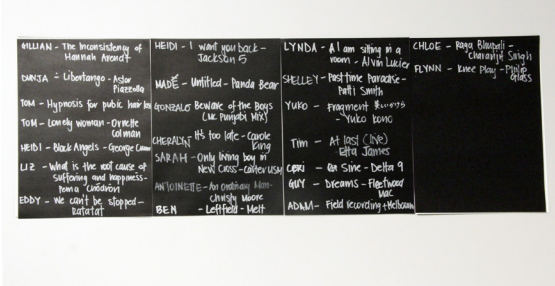 GILLIAN - The Inconsistency of
Hannah Arendt
DUNJA - Libertango - Astor
Piazzolla
TOM - Hypnosis for pubic hair loss
TOM - Lonely woman - Ornette
Colman
HEIDI - Black Angels - George Crumb
LIZ - What is the root cause of
suffering and happiness -
Pema Chodron
EDDY - We can't be stopped -
Ratatat
HEIDI - I want you back -
Jackson 5
MADÉ - Untitled - Panda Bear
GONZALO - Beware of the Boys
(UK Punjabi Mix)
CHERALYN - It's too late - Carole
King
SARAH - Only living boy in
New Cross - Carter USM
ANTOINETTE - An ordinary Man -
Christy Moore
BEN - Leftfield - Melt
LYNDA - I am sitting in a
room - Alvin Lucier
SHELLEY - Pastime Paradise -
Patti Smith
YUKO - Fragment
Yuko Kono
TIM - At last (live)
Etta James
CERI - Sine - Delta 9
GUY - Dreams - Fleetwood
Mac
ADAM - Field recording +
CHLOE - Raga Bhupali -
Charanjit Singh
FLYNN - Knee Play - Philip
Glass